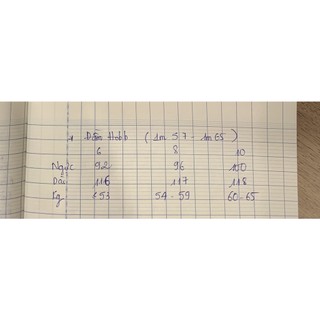 Đầm Hobb (1m57 - 1m65)
6 8 10
Ngực 92 96 100
Dài 116 117 118
Kg ≤53 54-59 60-65